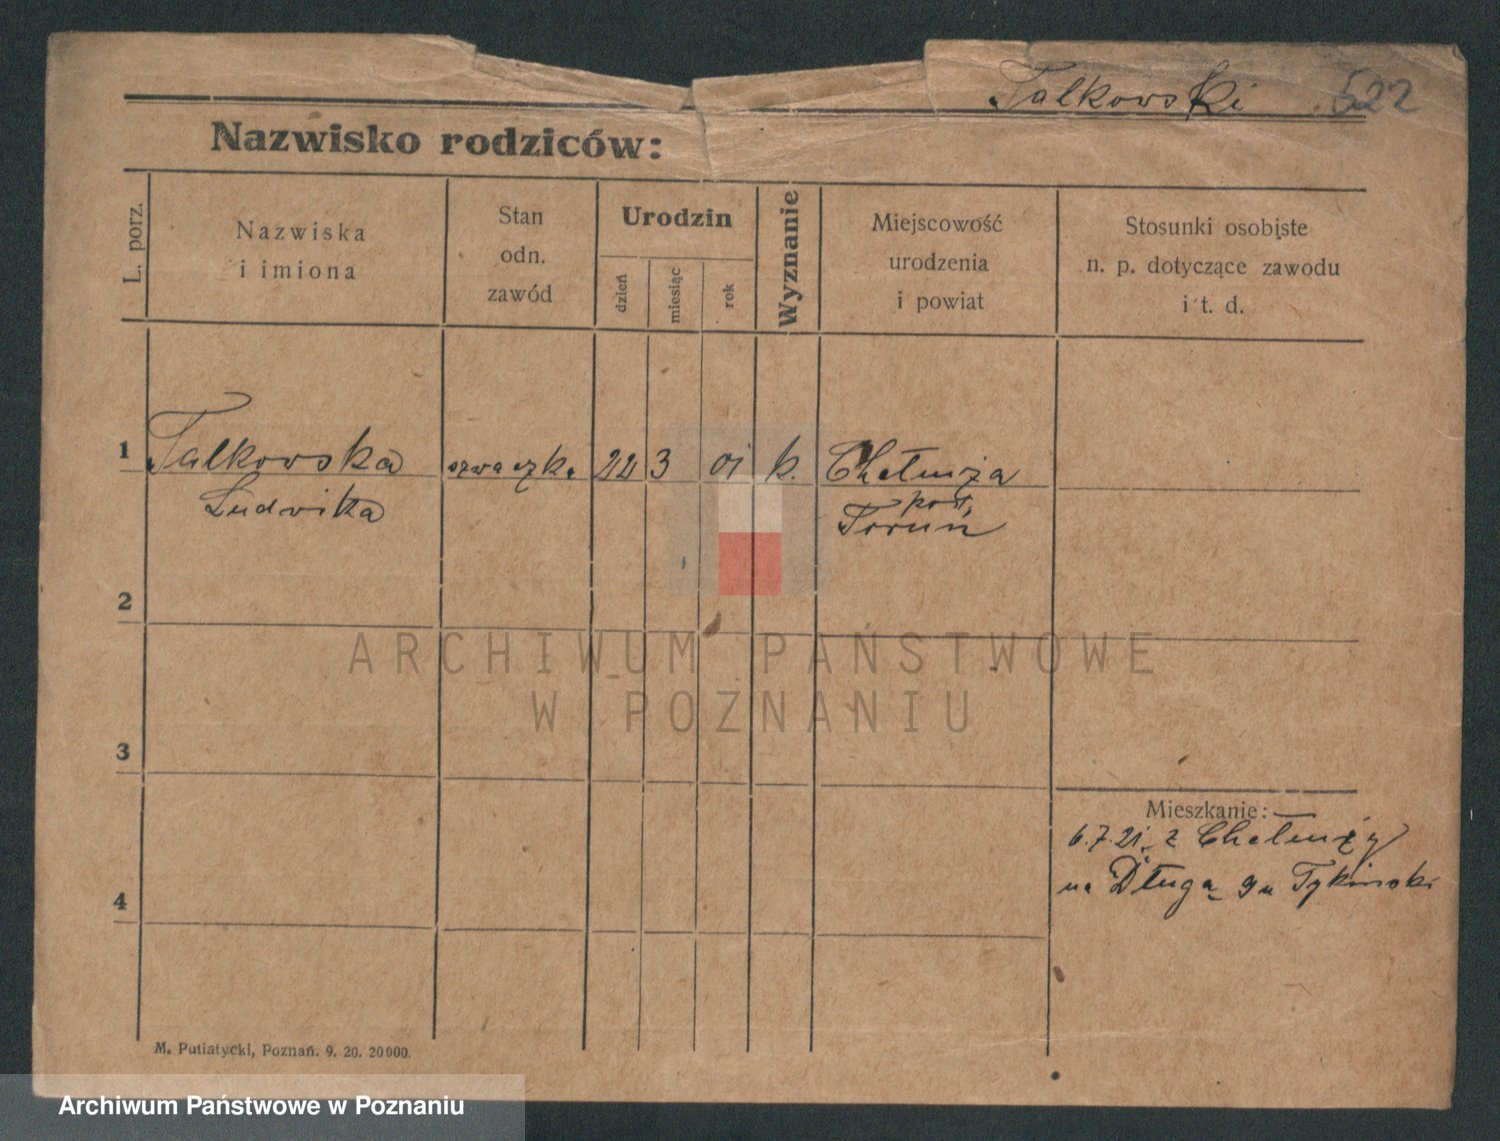 Talkowski 522
Nazwisko rodziców:
L. porz.
Nazwiska
i imiona
Stan
odn.
zawód
Urodzin
dzień
miesiąc
rok
Wyznanie
Miejscowość
urodzenia
i powiat
Stosunki osobiste
n. p. dotyczące zawodu
i t. d.
1 Talkowska szwaczka 22 3 01 k. Chełmża
Ludwika pow.
Toruń
2
ARCHIWUM PAŃSTWOWE
W POZNANIU
3
Mieszkanie:
6.7.21. z Chełmży
na Długą 9u
4
M. Putiatycki, Poznań. 9. 20. 20000.
Archiwum Państwowe w Poznaniu